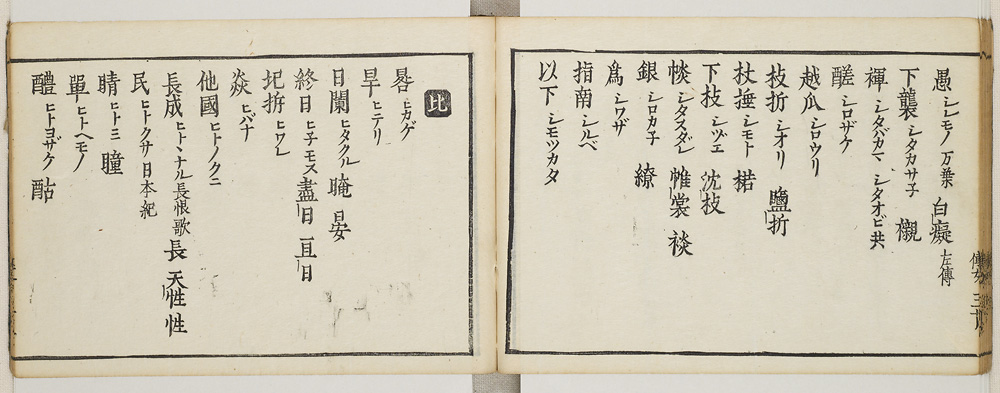 愚 シレモノ 万葉 白癡 左傳
下襲 シタカサ子 襯
褌 シタバカマ シタオビ共
醝 シロザケ
越瓜 シロウリ
枝折 シオリ 鹽折
杖捶 シモト 楉
下枝 シヅエ 沈枝
帹 シタスダレ 帷裳 裧
銀 シロカ子 鐐
爲 シワザ
指南 シルベ
以下 シモツカタ
比
晷 ヒカゲ
旱 ヒテリ
日闌 ヒタクル 晻 晏
終日 ヒ子モス 盡日 亘日
圮拆 ヒワレ
焱 ヒバナ
他國 ヒトノクニ
長成 ヒトヽナル 長恨歌 長 天性 性
民 ヒトクサ 日本紀
睛 ヒトミ 瞳
單 ヒトヘモノ
醴 ヒトヨザケ 酤